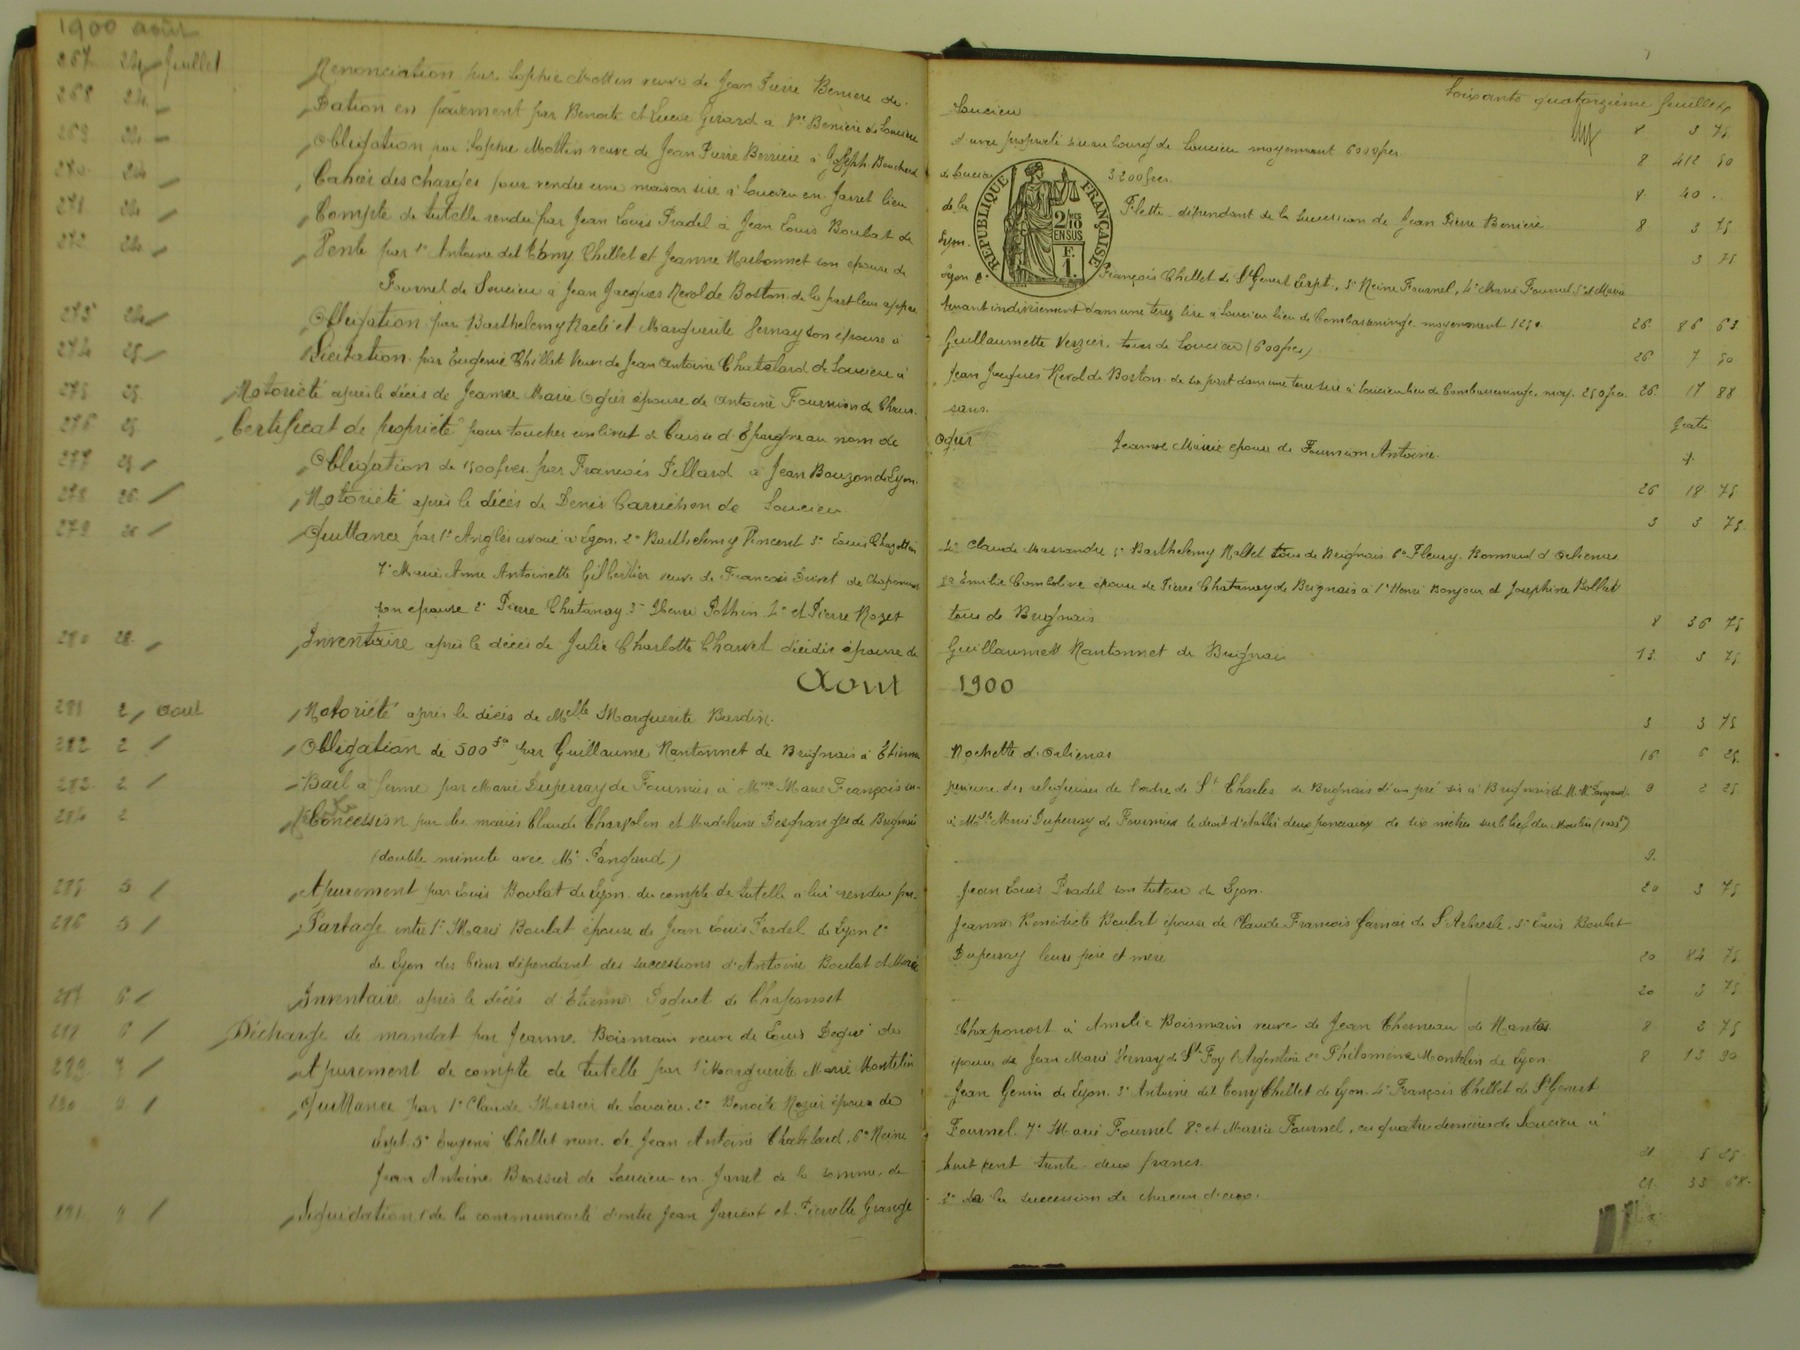 1900 août
Soixante quatorzième feuillet
267 24 Juillet Renonciation par Sophie Mottin veuve de Jean Pierre Beniere de Soucieu 8 3 75
268 24 Dation en paiement par Benoite et Lucie Girard a Vve Beniere de Soucieu d'une propriété sise au bourg de Soucieu moyennant 6000 frcs 8 412 50
269 24 Obligation par Sophie Mottin veuve de Jean Pierre Berniere à Joseph Bouchard de Soucieu 3200 frcs. 8 40
270 24 Cahier des charges pour vendre une maison sise à Soucieu en Jarret lieu de la Flette dépendant de la succession de Jean Pierre Beniere 8 3 75
REPUBLIQUE FRANÇAISE
2/10 EN SUS
F. 1.
271 24 Compte de tutelle rendu par Jean Louis Pradel à Jean Louis Boulat de Lyon. 3 75
272 24 Vente par 1° Antoine dit Tony Chillet et Jeanne Narbonnet son épouse de Lyon 2° François Chillet de St Genest Lerpt, 3° Reine Fournel, 4° Marie Fournel 5° et Maria
Fournel de Soucieu à Jean Jacques Revol de Boston de la part leur appartenant indivisément dans une terre sise à Soucieu lieu de Combareminge moyennant 1250. 26 86 63
273 24 Obligation par Barthelemy Racle et Marguerite Vernay son épouse à Guillaumette Verzier, tous de Soucieu (600 frcs) 26 7 50
274 25 Licitation par Eugenie Chillet Veuve de Jean Antoine Chatelard de Soucieu à Jean Jacques Revol de Boston de sa part dans une terre sise à Soucieu lieu de Combareminge moy. 250 frcs 26 17 88
275 25 Notoriété après le décès de Jeanne Marie Ogier épouse de Antoine Fournion de sans. Gratis
276 25 Certificat de propriété pour toucher un livret de Caisse d'Epargne au nom de Ogier Jeanne Marie épouse de Fournion Antoine.
277 25 Obligation de 1500 frcs par François Pillard à Jean Bouzon de Lyon. 26 18 75
278 26 Notoriété après le décès de Denis Carrichon de Soucieu 3 3 75
279 26 Quittance par 1° Anglès avoué à Lyon. 2° Barthelemy Vincent 3° Louis 4° Claude Massandre 5° Barthelemy Mallet tous de Brignais 6° Fleury Bonnand d'Orlienas
7° Marie Anne Antoinette Gilbertier veuve de François Duret de Chaponost Emilie épouse de Pierre Chatanay de Brignais à 1° Henri Bonjour et Josephine Rollat
son épouse 2° Pierre Chatanay 3° Henri Pothin 4° et Pierre Rozet tous de Brignais 8 36 75
280 28 Inventaire après le décès de Julie Charlotte Charvet décédée épouse de Guillaume Nantonnet de Brignais 13 3 75
Aout 1900
281 2 Aout Notoriété après le décès de Melle Marguerite Burdin. 3 3 75
282 2 Obligation de 500 frs par Guillaume Nantonnet de Brignais à Etienne Rochette d'Orlienas 16 6 25
283 2 Bail à ferme par Marie Duperray de Fournies à Mme Marie François supérieure des religieuses de l'ordre de St Charles de Brignais d'un pré sis à Brignais 9 2 25
284 2 Concession par les mariés Claude Charpolin et Madeleine Desgranges de Brignais à Melle Marie Duperray de Fournies le droit d'établir deux ponceaux de six mètres sur le bief du Moulin
(double minute avec Me Fangand) 9
285 5 Apurement par Louis Boulat de Lyon du compte de tutelle à lui rendu par Jean Louis Pradel son tuteur de Lyon. 20 3 75
286 5 Partage entre 1° Marie Boulat épouse de Jean Louis Pradel de Lyon 2° Jeanne Benedicte Boulat épouse de Claude François Garnier de L'Arbresle, 3° Louis Boulat
de Lyon des biens dépendant des successions d'Antoine Boulat et Marie Duperray leurs père et mère 20 84 75
287 6 Inventaire après le décès d'Etienne Paquet de Chaponost 20 3 75
288 6 Décharge de mandat par Jeanne Boismain veuve de Louis Degué de Chaponost à Amelie Boismain veuve de Jean Chesneau de Nantes 8 3 75
289 7 Apurement de compte de tutelle par 1° Marguerite Marie Montelin épouse de Jean Marie Vernay de Ste Foy l'Argentière 2° Philomène Montelin de Lyon. 8 13 50
290 9 Quittance par 1° Claude Messier de Soucieu 2° Benoite Rozier épouse de Jean Genin de Lyon. 3° Antoine dit Tony Chillet de Lyon. 4° François Chillet de St Genest
Lerpt 5° Eugenie Chillet veuve de Jean Antoine Chatelard, 6° Reine Fournel 7° Marie Fournel 8° et Maria Fournel, ces quatre dernières de Soucieu à
Jean Antoine Brossier de Soucieu en Jarret de la somme de huit cent trente deux francs. 21 5 25
291 9 Liquidation 1° de la communauté d'entre Jean Jaricot et Pierrette Grange 2° de la succession de chacun d'eux. 21 33 68